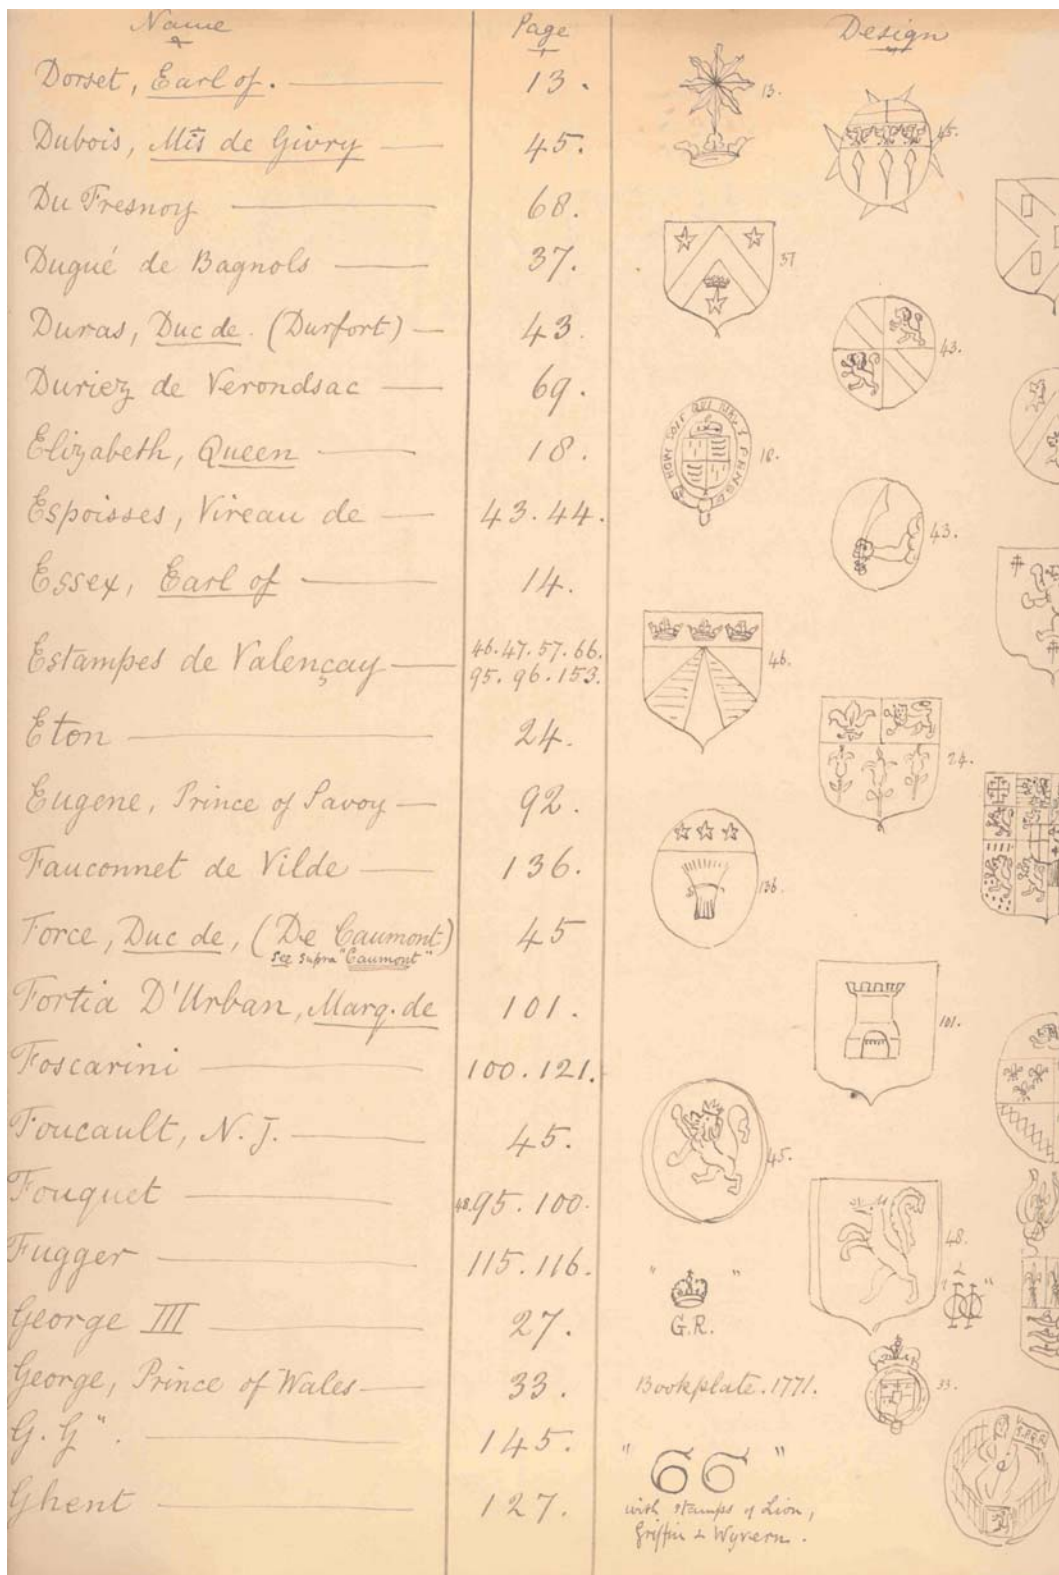 Name Page Design
Dorset, Earl of. 13. 13.
Dubois, Mis de Givry 45. 45.
Du Fresnoy 68.
Dugué de Bagnols 37. 37
Duras, Duc de. (Durfort) 43. 43.
Duriez de Verondsac 69.
Elizabeth, Queen 18. 18.
Espoisses, Vireau de 43.44. 43.
Essex, Earl of 14.
Estampes de Valençay 46.47.57.66. 46.
95.96.153.
Eton 24. 24.
Eugene, Prince of Savoy 92.
Fauconnet de Vilde 136. 136.
Force, Duc de, (De Caumont) 45
See supra "Caumont"
Fortia D'Urban, Marq. de 101. 101.
Foscarini 100.121.
Foucault, N. J. 45. 45.
Fouquet 48.95.100. 48.
Fugger 115.116.
" "
George III 27. G.R.
George, Prince of Wales 33. Bookplate. 1771. 33.
G. G". 145.
"GG"
Ghent 127. with stamps of Lion,
Griffin & Wyvern.